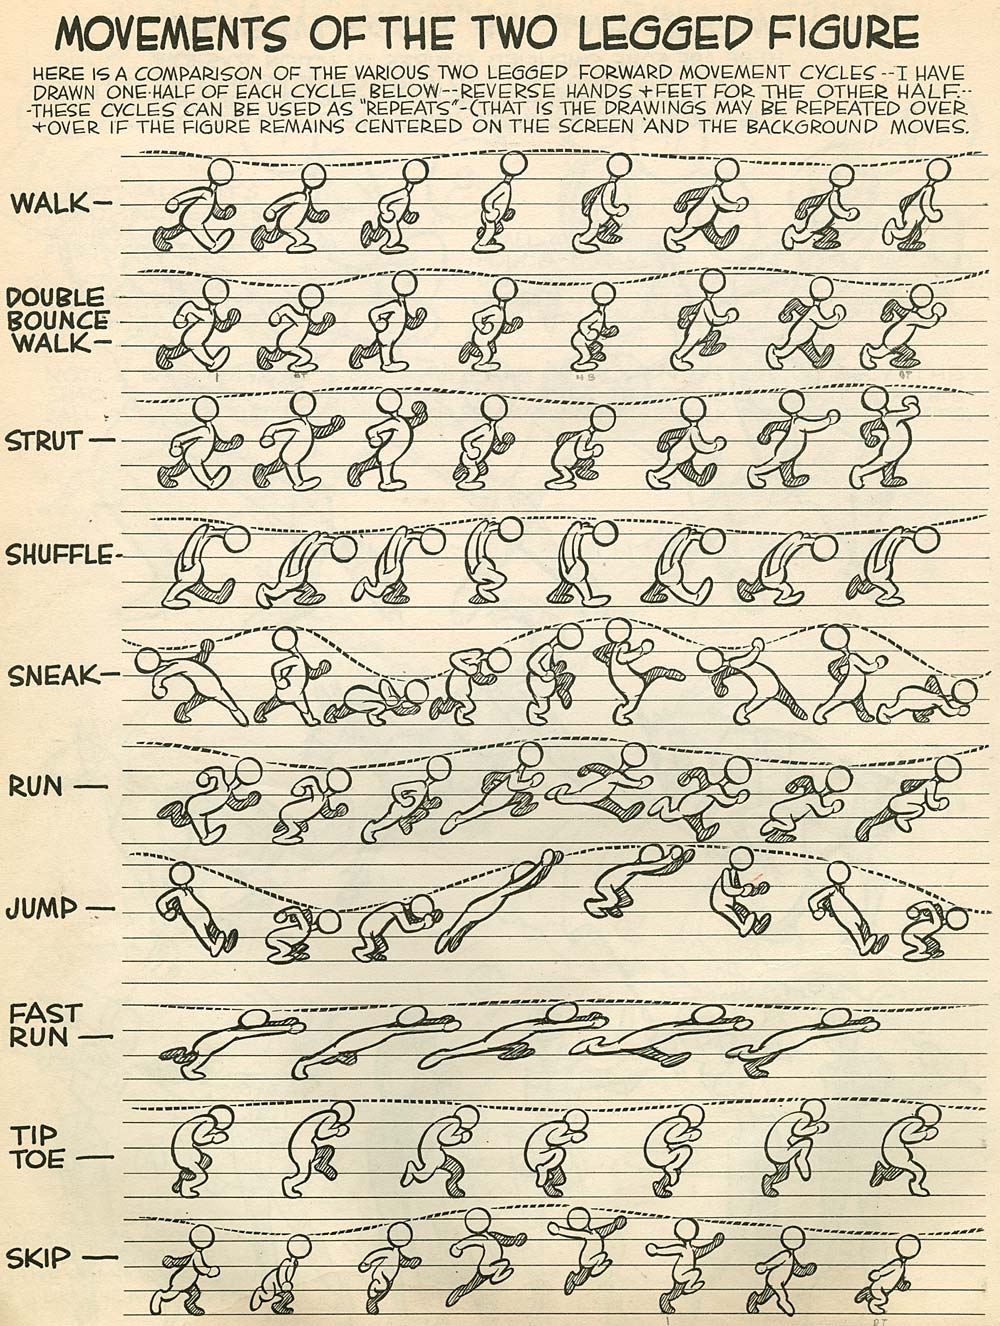 MOVEMENTS OF THE TWO LEGGED FIGURE
HERE IS A COMPARISON OF THE VARIOUS TWO LEGGED FORWARD MOVEMENT CYCLES--I HAVE
DRAWN ONE-HALF OF EACH CYCLE BELOW--REVERSE HANDS + FEET FOR THE OTHER HALF--
-THESE CYCLES CAN BE USED AS "REPEATS"-(THAT IS THE DRAWINGS MAY BE REPEATED OVER
+ OVER IF THE FIGURE REMAINS CENTERED ON THE SCREEN AND THE BACKGROUND MOVES.
WALK—
DOUBLE
BOUNCE
WALK—
STRUT—
SHUFFLE-
SNEAK—
RUN —
JUMP —
FAST
RUN —
TIP
TOE —
SKIP —